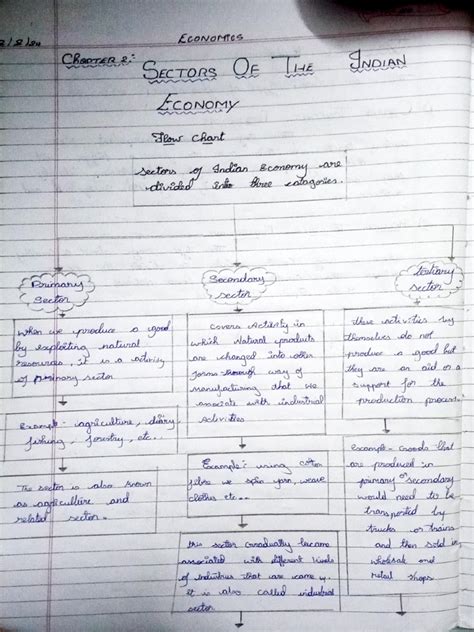 Economics
Chapter 2:
Sectors Of The Indian
Economy
Flow Chart
Sectors of Indian Economy are
divided into three catagories.
Primary
Sector
When we produce a good
by exploiting natural
resources, it is a activity
of primary sector
Example - agriculture, diary
fishing, forestry, etc..
The sector is also known
as agriculture and
related sector.
Secondary
sector
Covers Activity in
which Natural products
are changed into other
forms through way of
manufacturing that we
associate with industrial
activities
Example: using cotton
fibre we spin yarn, weave
clothes etc...
this sector Gradually became
associated with different kinds
of Industries that are came up.
it is also called industrial
sector
tertiary
sector
these activities by
themselves do not
produce a good but
they are an aid or a
support for the
production process.
Example - Goods that
are produced in
primary or secondary
would need to be
transported by
trucks or trains
and then sold in
wholesale and
retail shops